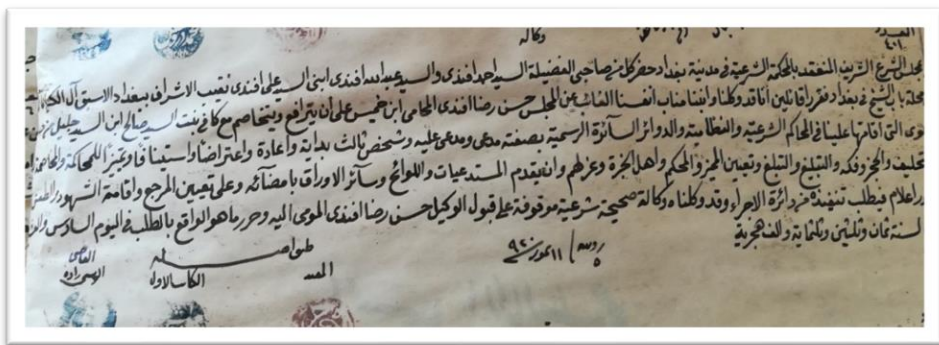 العدد
وكالة
مجلس الشرع الشريف المنعقد بالمحكمة الشرعية في مدينة بغداد حضر كل من صاحبي الفضيلة السيد احمد افندي والسيد عبد الله افندي ابني السيد علي افندي نقيب الاشراف ببغداد الاسبق آل
محلة باب الشيخ في بغداد فقررا قائلين انا قد وكلنا وانبنا مناب انفسنا الغائب عن المجلس حسن رضا افندي المحامي ابن خميس على ان يترافع ويتخاصم مع كافة بنت السيد صالح ابن السيد خليل
التي اقامتها علينا في المحاكم الشرعية والنظامية والدوائر السائرة الرسمية بصفته مدعي ومدعى عليه وشخص ثالث بداية واعادة واعتراضا واستينافا وتمييزا للمحاكمة
تحليف والحجز وفكه والتبليغ والتبلغ وتعيين المميز والمحكم واهل الخبرة وعزلهم وان يقدم المستدعيات واللوائح وسائر الاوراق بامضائه وعلى تعيين المرجع واقامة الشهود
اعلام فيطلب تنفيذه من دائرة الاجراء وقد وكلناه وكالة صحيحة شرعية موقوفة على قبول الوكيل حسن رضا افندي المومى اليه وحرر ما هو الواقع بالطلب في اليوم السادس
لسنة ثمان وثلثين وثلثمائة والف هجرية
١١ تموز ٩٢٠
طبق اصله
القاضي
الكاتب الاول